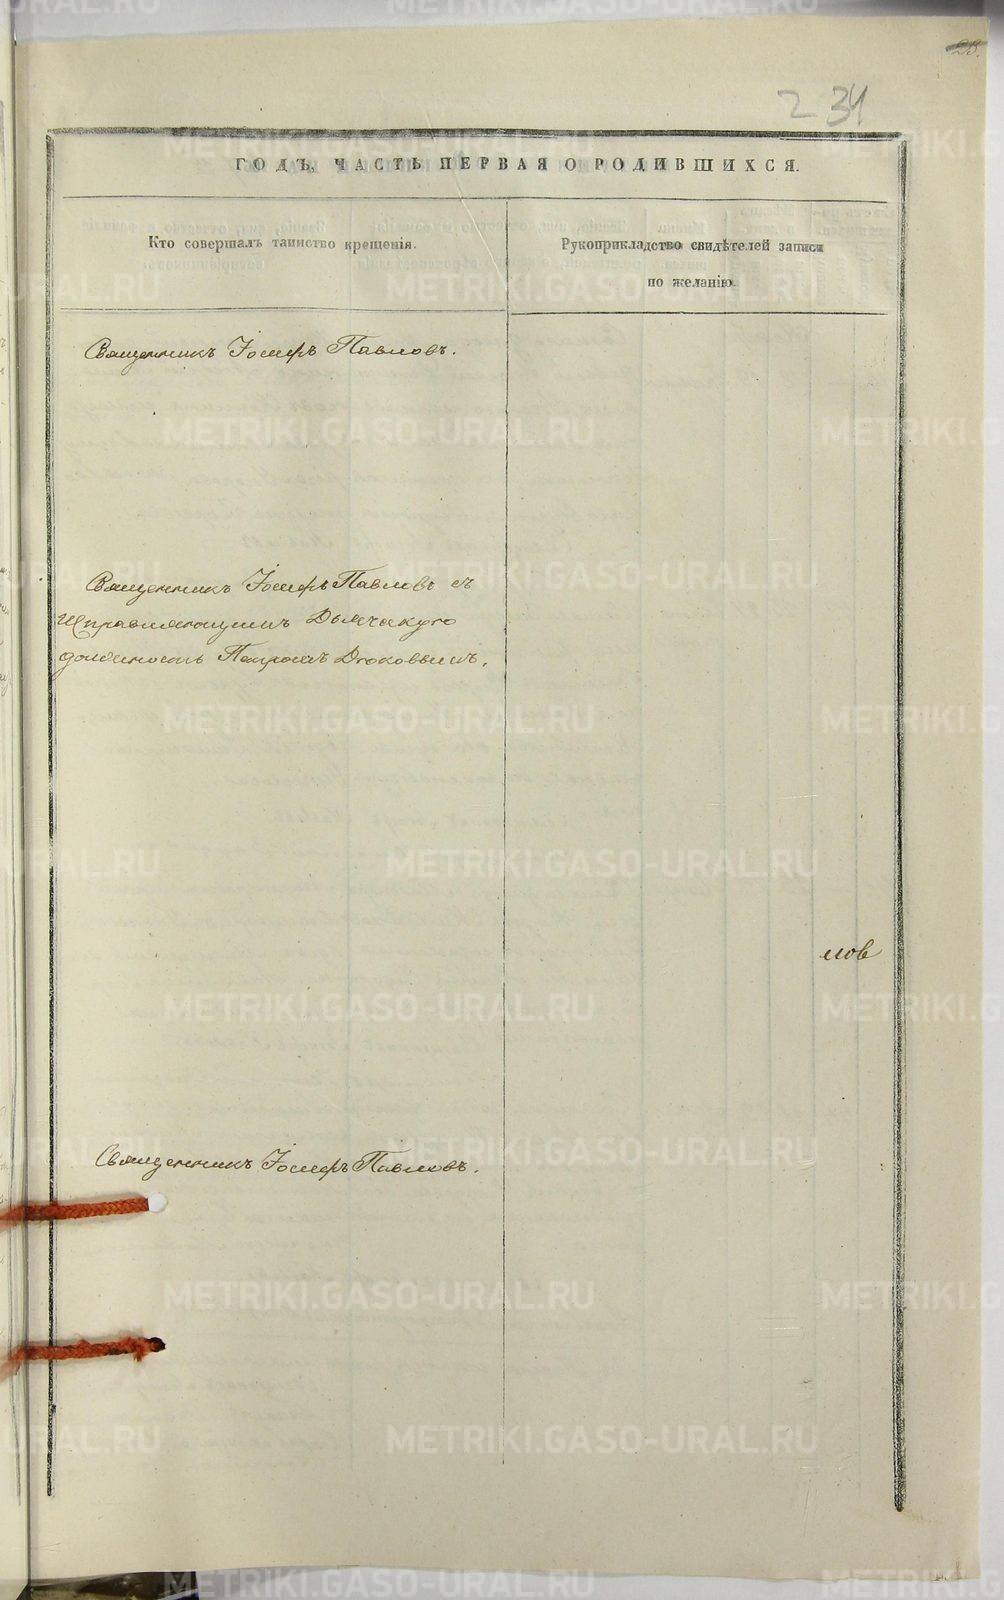 28.
234
ГОДЪ, ЧАСТЬ ПЕРВАЯ О РОДИВШИХСЯ.
Кто совершалъ таинство крещенія.
Рукоприкладство свидѣтелей записи
по желанію.
Священникъ Іосифъ Павловъ.
Священникъ Іосифъ Павловъ съ
Исправляющимъ Дьячкую
должность Петромъ Дюковымъ.
лов
Священникъ Іосифъ Павловъ.
METRIKI.GASO-URAL.RU